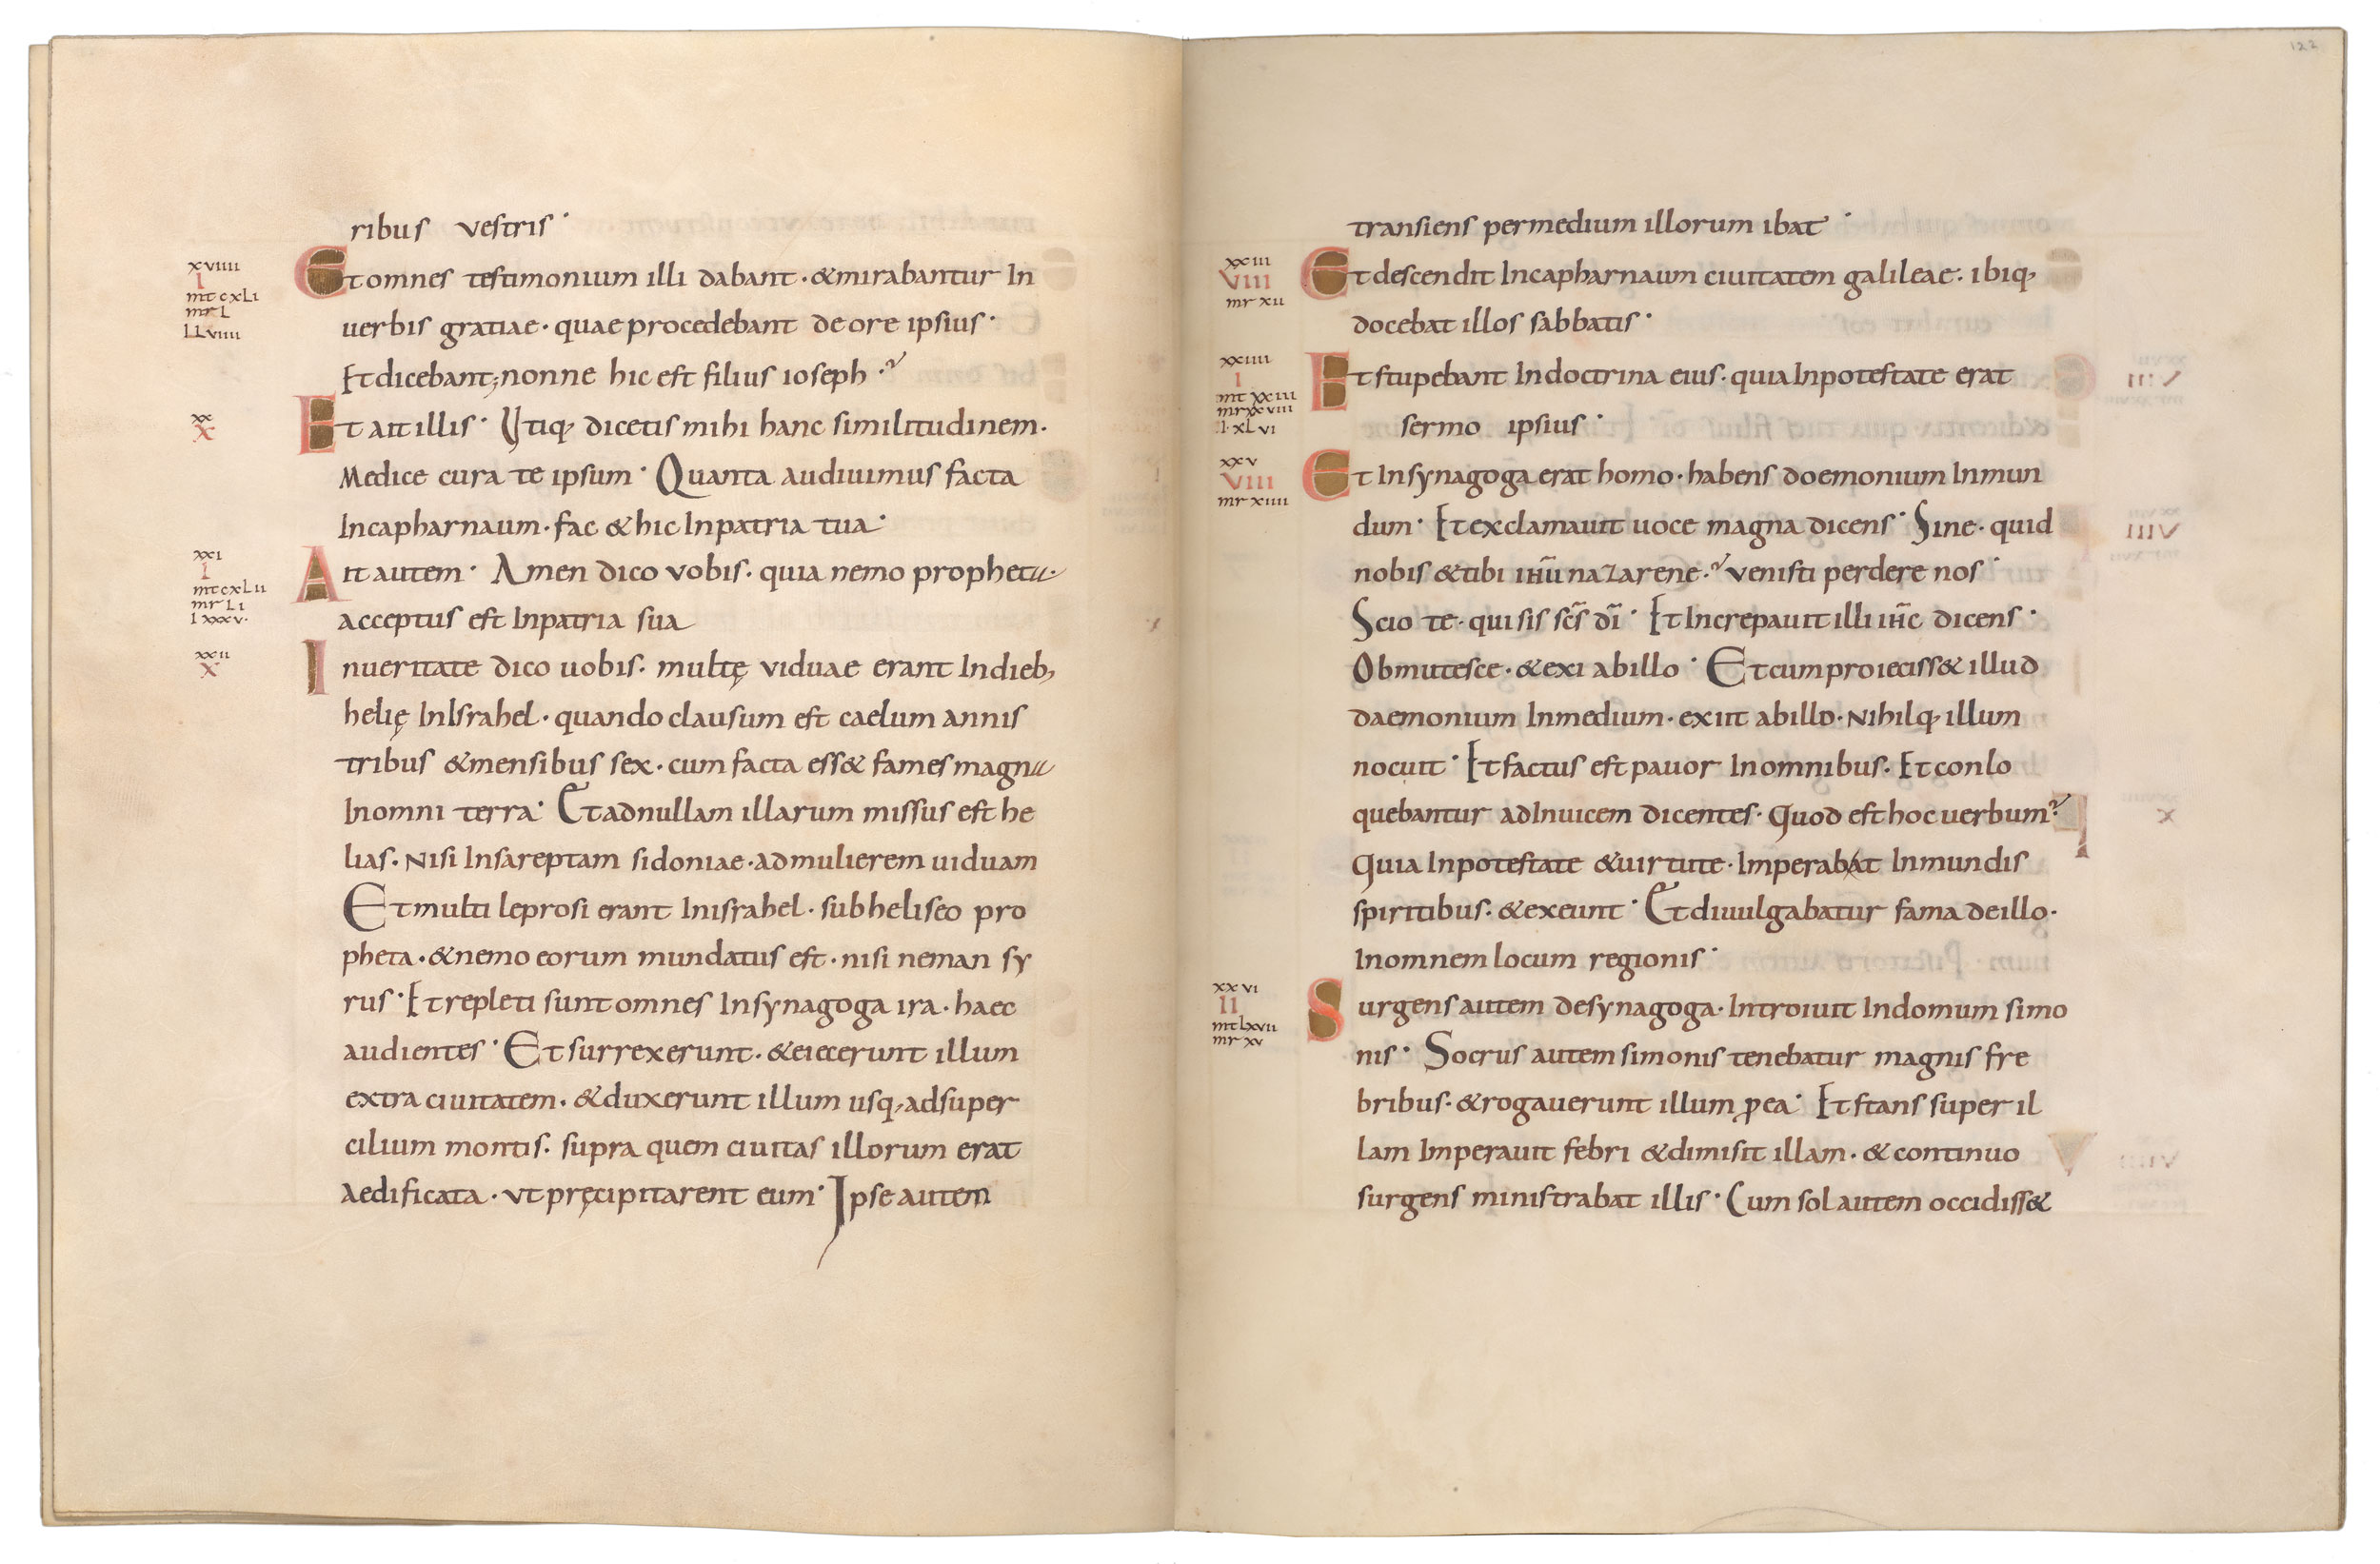 ribus vestris·
xviiii
I
mt cxli
mr L
I Lviiii
Et omnes testimonium illi dabant· & mirabantur In
uerbis gratiae· quae procedebant de ore ipsius·
Et dicebant; nonne hic est filius ioseph·?
xx
X
Et ait illis· Utiq, dicetis mihi hanc similitudinem·
Medice cura te ipsum· Quanta audiuimus facta
Incapharnaum· fac & hic Inpatria tua·
xxi
I
mt cxlii
mr Li
I xxxv·
Ait autem· Amen dico vobis· quia nemo propheta·
acceptus est Inpatria sua
xxii
X
Inueritate dico uobis· multę viduae erant Indieb;
helię InIsrahel· quando clausum est caelum annis
tribus & mensibus sex· cum facta ess& fames magna
Inomni terra· Et ad nullam illarum missus est he
lias· Nisi Insareptam sidoniae· ad mulierem uiduam
Et multi leprosi erant Inisrahel· sub heliseo pro
pheta· & nemo eorum mundatus est· nisi neman sy
rus· Et repleti sunt omnes Insynagoga ira· haec
audientes· Et surrexerunt· & eiecerunt illum
extra ciuitatem· & duxerunt illum usq, ad super
cilium montis· supra quem ciuitas illorum erat
aedificata· vt pręcipitarent eum· Ipse autem
122
transiens per medium illorum ibat·
xxiii
VIII
mr xii
Et descendit Incapharnaum ciuitatem galileae· ibiq,
docebat illos sabbatis·
xxiiii
I
mt xxiii
mr xxviii
I· xLvi
Et stupebant Indoctrina eius· quia Inpotestate erat
sermo ipsius·
xxv
VIII
mr xiiii
Et Insynagoga erat homo· habens doemonium Inmun
dum· Et exclamauit uoce magna dicens· Sine· quid
nobis & tibi ihū nazarene·? venisti perdere nos·
Scio te· qui sis scs̄ dī· Et Increpauit illi ihc̄ dicens·
Obmutesce· & exi ab illo· Et cum proieciss& illud
daemonium Inmedium· exiit ab illo· Nihilq, illum
nocuit· Et factus est pauor Inomnibus· Et conlo
quebantur adInuicem dicentes· Quod est hoc uerbum?
Quia Inpotestate & uirtute· Imperabat Inmundis
spiritibus· & exeunt· Et diuulgabatur fama de illo·
Inomnem locum regionis·
xxvi
II
mt lxvii
mr xv
Surgens autem de synagoga· Introiuit Indomum simo
nis· Socrus autem simonis tenebatur magnis fre
bribus· & rogauerunt illum ꝓ ea· Et stans super il
lam Imperauit febri & dimisit illam· & continuo
surgens ministrabat illis· Cum sol autem occidiss&